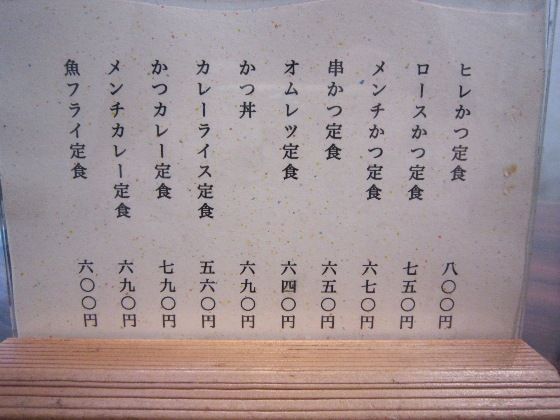 ヒレかつ定食 八〇〇円
ロースかつ定食 七五〇円
メンチかつ定食 六七〇円
串かつ定食 六五〇円
オムレツ定食 六四〇円
かつ丼 六九〇円
カレーライス定食 五六〇円
かつカレー定食 七九〇円
メンチカレー定食 六九〇円
魚フライ定食 六〇〇円